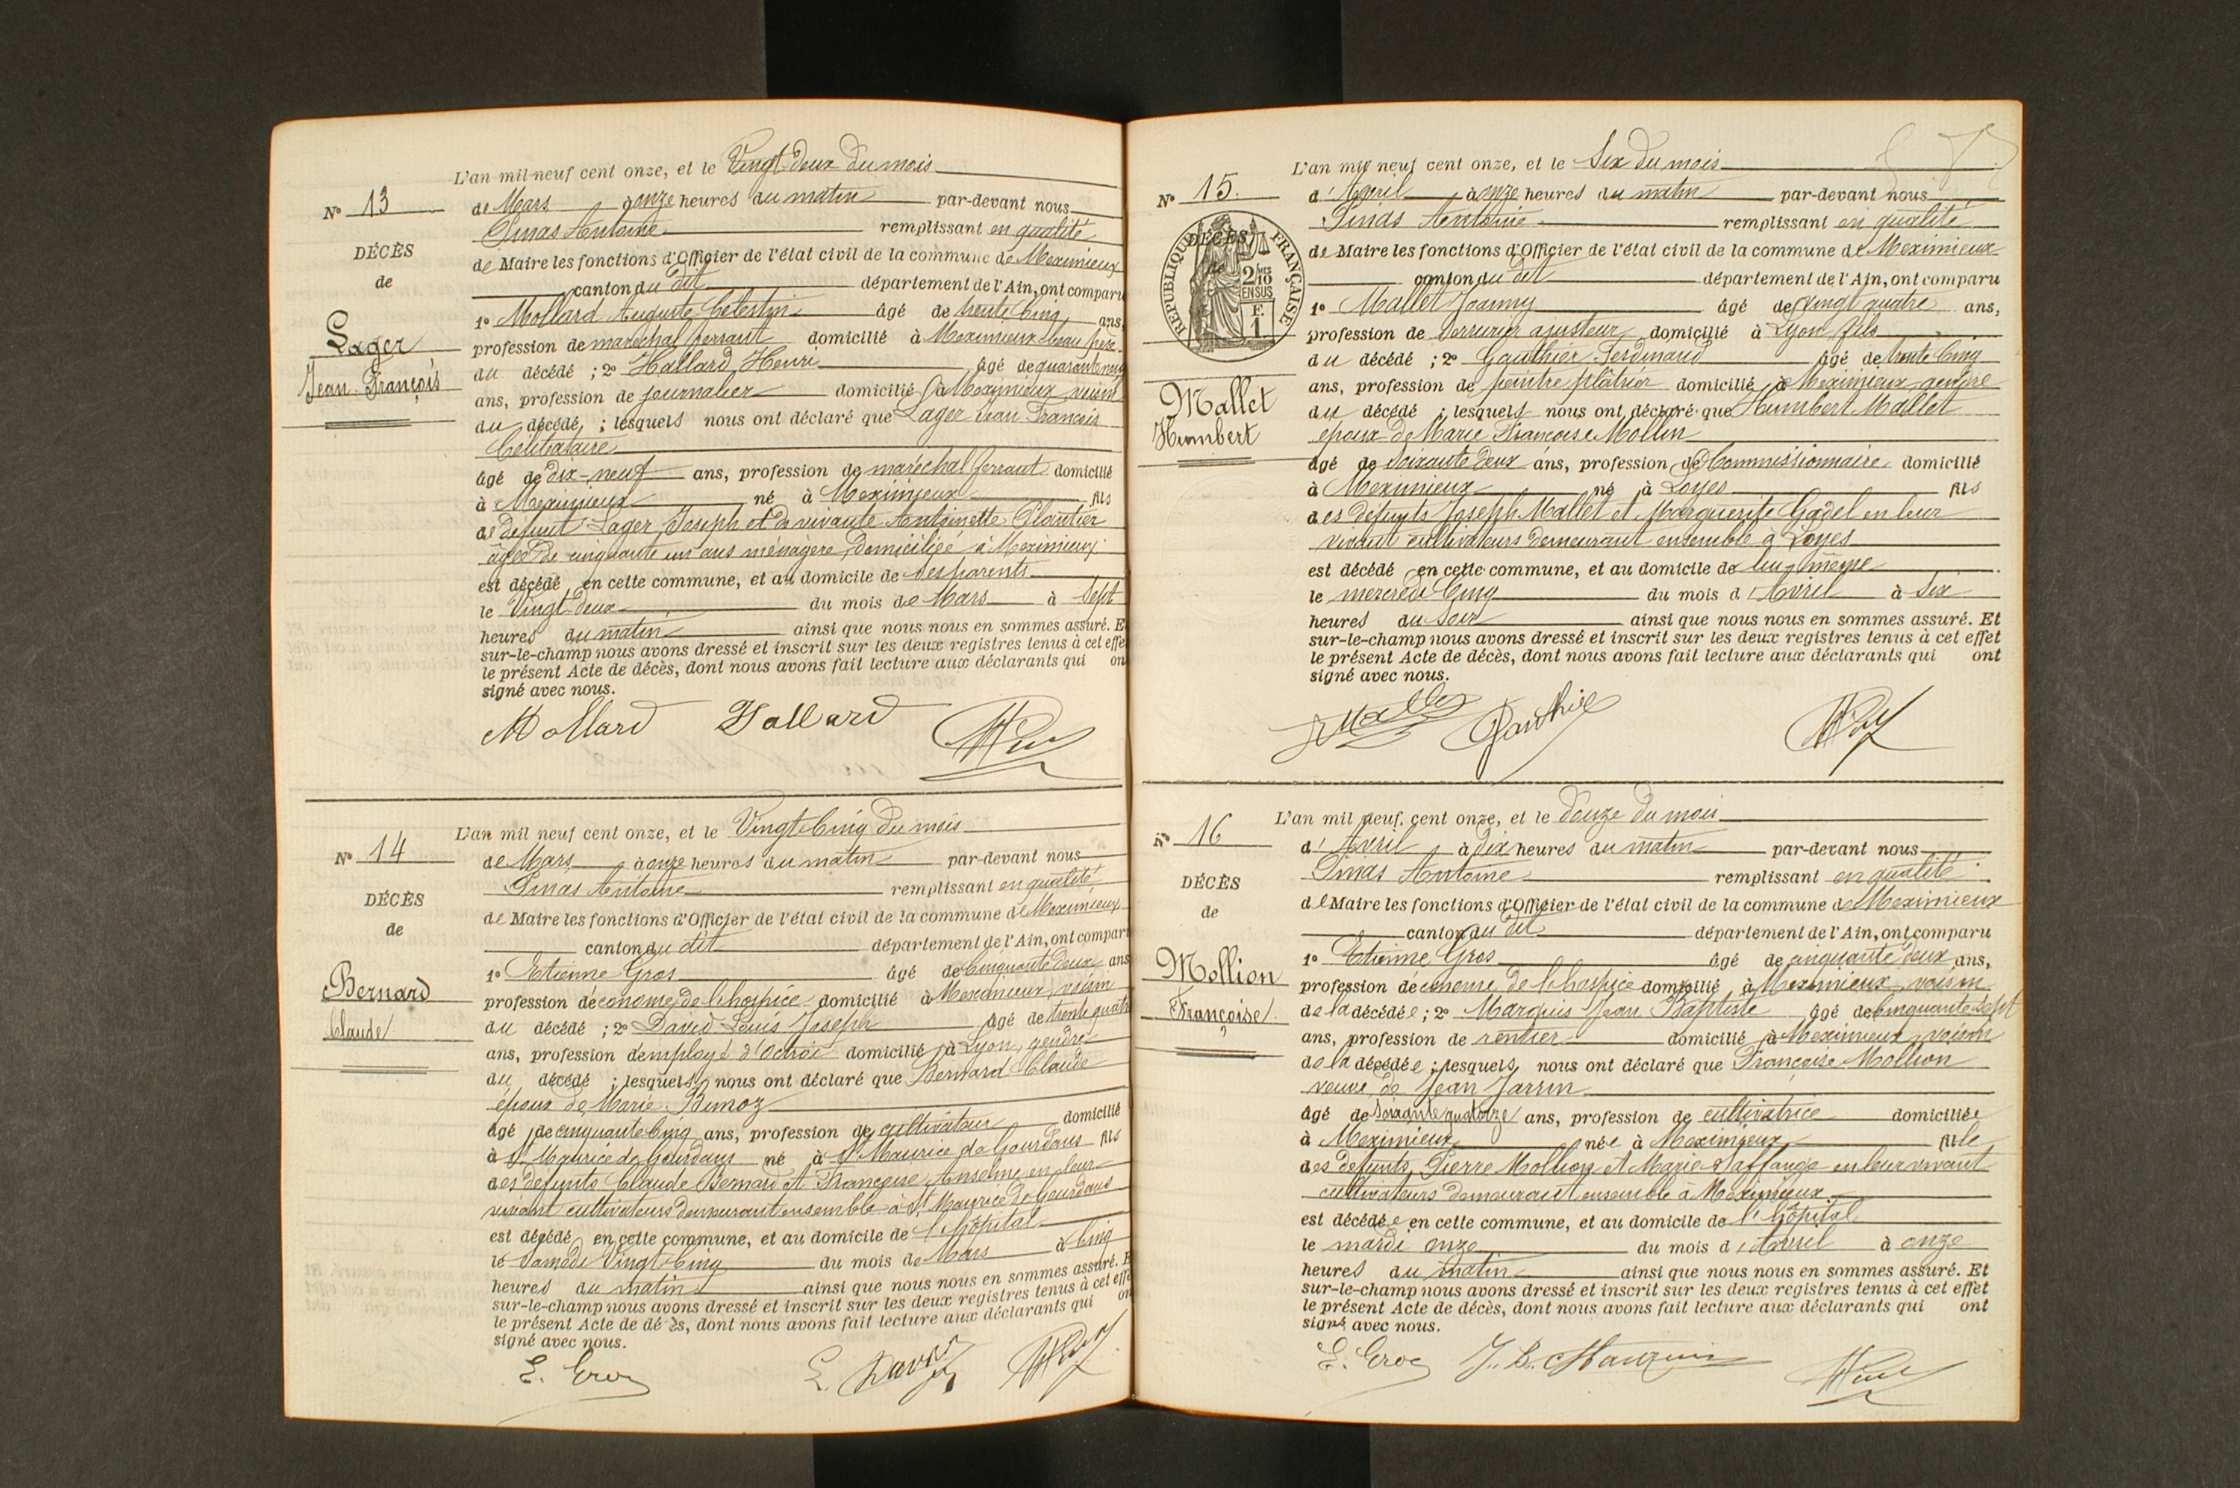 L'an mil neuf cent onze, et le Vingt-deux du mois
N° 13
de Mars à onze heures du matin par-devant nous
Pinas Antoine remplissant en qualité
DÉCÈS
de Maire les fonctions d'Officier de l'état civil de la commune de Meximieux
de
canton du dit département de l'Ain, ont comparu
1° Mollard Auguste Célestin âgé de trente cinq ans,
Lager
profession de maréchal ferrant domicilié à Meximieux beau frère
Jean-François
du décédé ; 2° Hallard Henri âgé de quarante neuf
ans, profession de journalier domicilié à Meximieux voisin
du décédé ; lesquels nous ont déclaré que Lager Jean François
Célibataire
âgé de dix-neuf ans, profession de maréchal ferrant domicilié
à Meximieux né à Meximieux fils
de défunt Lager Joseph et de vivante Antoinette Plantier
âgée de cinquante un ans ménagère, domiciliée à Meximieux
est décédé en cette commune, et au domicile de ses parents
le Vingt deux du mois de Mars à Sept
heures du matin ainsi que nous nous en sommes assuré. E
sur-le-champ nous avons dressé et inscrit sur les deux registres tenus à cet effe
le présent Acte de décès, dont nous avons fait lecture aux déclarants qui on
signé avec nous.
Mollard Hallard
L'an mil neuf cent onze, et le Vingt-Cinq du mois
N° 14
de Mars à onze heures du matin par-devant nous
Pinas Antoine remplissant en qualité
DÉCÈS
de Maire les fonctions d'Officier de l'état civil de la commune de Meximieux
de
canton du dit département de l'Ain, ont compar
1° Etienne Gros âgé de Cinquante deux ans
Bernard
profession d'économe de l'hospice domicilié à Meximieux, voisin
Claude
du décédé ; 2° David Louis Joseph âgé de trente quatre
ans, profession d'employé d'octroi domicilié à Lyon, gendre
du décédé ; lesquels nous ont déclaré que Bernard Claude
époux de Marie Bimoz
âgé de cinquante cinq ans, profession de cultivateur domicilié
à St Maurice de Gourdans né à St Maurice de Gourdans fils
des défunts Claude Bernard et Françoise Anselme en leur
vivant cultivateurs demeurant ensemble à St Maurice de Gourdans
est décédé en cette commune, et au domicile de l'hôpital
le Samedi Vingt-Cinq du mois de Mars à Cinq
heures du matin ainsi que nous nous en sommes assuré. E
sur-le-champ nous avons dressé et inscrit sur les deux registres tenus à cet effe
le présent Acte de décès, dont nous avons fait lecture aux déclarants qui on
signé avec nous.
E. Gros L. David
L'an mil neuf cent onze, et le Six du mois
N° 15.
d'Avril à onze heures du matin par-devant nous
Pinas Antoine remplissant en qualité
DÉCÈS
RÉPUBLIQUE FRANÇAISE
2/10 EN SUS
F. 1
de Maire les fonctions d'Officier de l'état civil de la commune de Meximieux
canton du dit département de l'Ain, ont comparu
1° Mallet Joanny âgé de Vingt quatre ans,
profession de serrurier ajusteur domicilié à Lyon fils
du décédé ; 2° Gauthier Ferdinand âgé de trente Cinq
ans, profession de peintre plâtrier domicilié à Meximieux gendre
Mallet
du décédé ; lesquels nous ont déclaré que Humbert Mallet
Humbert
époux de Marie Françoise Mollin
âgé de soixante deux ans, profession de Commissionnaire domicilié
à Meximieux né à Loyes fils
des défunts Joseph Mallet et Marguerite Gadel en leur
vivant cultivateurs demeurant ensemble à Loyes
est décédé en cette commune, et au domicile de lui-même
le mercredi Cinq du mois d'Avril à Six
heures du soir ainsi que nous nous en sommes assuré. Et
sur-le-champ nous avons dressé et inscrit sur les deux registres tenus à cet effet
le présent Acte de décès, dont nous avons fait lecture aux déclarants qui ont
signé avec nous.
J Mallet Gauthier
L'an mil neuf cent onze, et le Douze du mois
N° 16
d'Avril à dix heures du matin par-devant nous
Pinas Antoine remplissant en qualité
DÉCÈS
de Maire les fonctions d'Officier de l'état civil de la commune de Meximieux
de
canton du dit département de l'Ain, ont comparu
1° Etienne Gros âgé de cinquante deux ans,
Mollion
profession d'économe de l'hospice domicilié à Meximieux, voisin
Françoise
de la décédée ; 2° Marquis Jean Baptiste âgé de Cinquante Sept
ans, profession de rentier domicilié à Meximieux, voisin
de la décédée ; lesquels nous ont déclaré que Françoise Mollion
veuve de Jean Jarrin
âgé de soixante quatorze ans, profession de cultivatrice domiciliée
à Meximieux née à Meximieux fille
des défunts Pierre Mollion et Marie Saffange en leur vivant
cultivateurs demeurant ensemble à Meximieux
est décédée en cette commune, et au domicile de l'hôpital
le mardi onze du mois d'Avril à onze
heures du matin ainsi que nous nous en sommes assuré. Et
sur-le-champ nous avons dressé et inscrit sur les deux registres tenus à cet effet
le présent Acte de décès, dont nous avons fait lecture aux déclarants qui ont
signé avec nous.
E. Gros J. B. Marquis